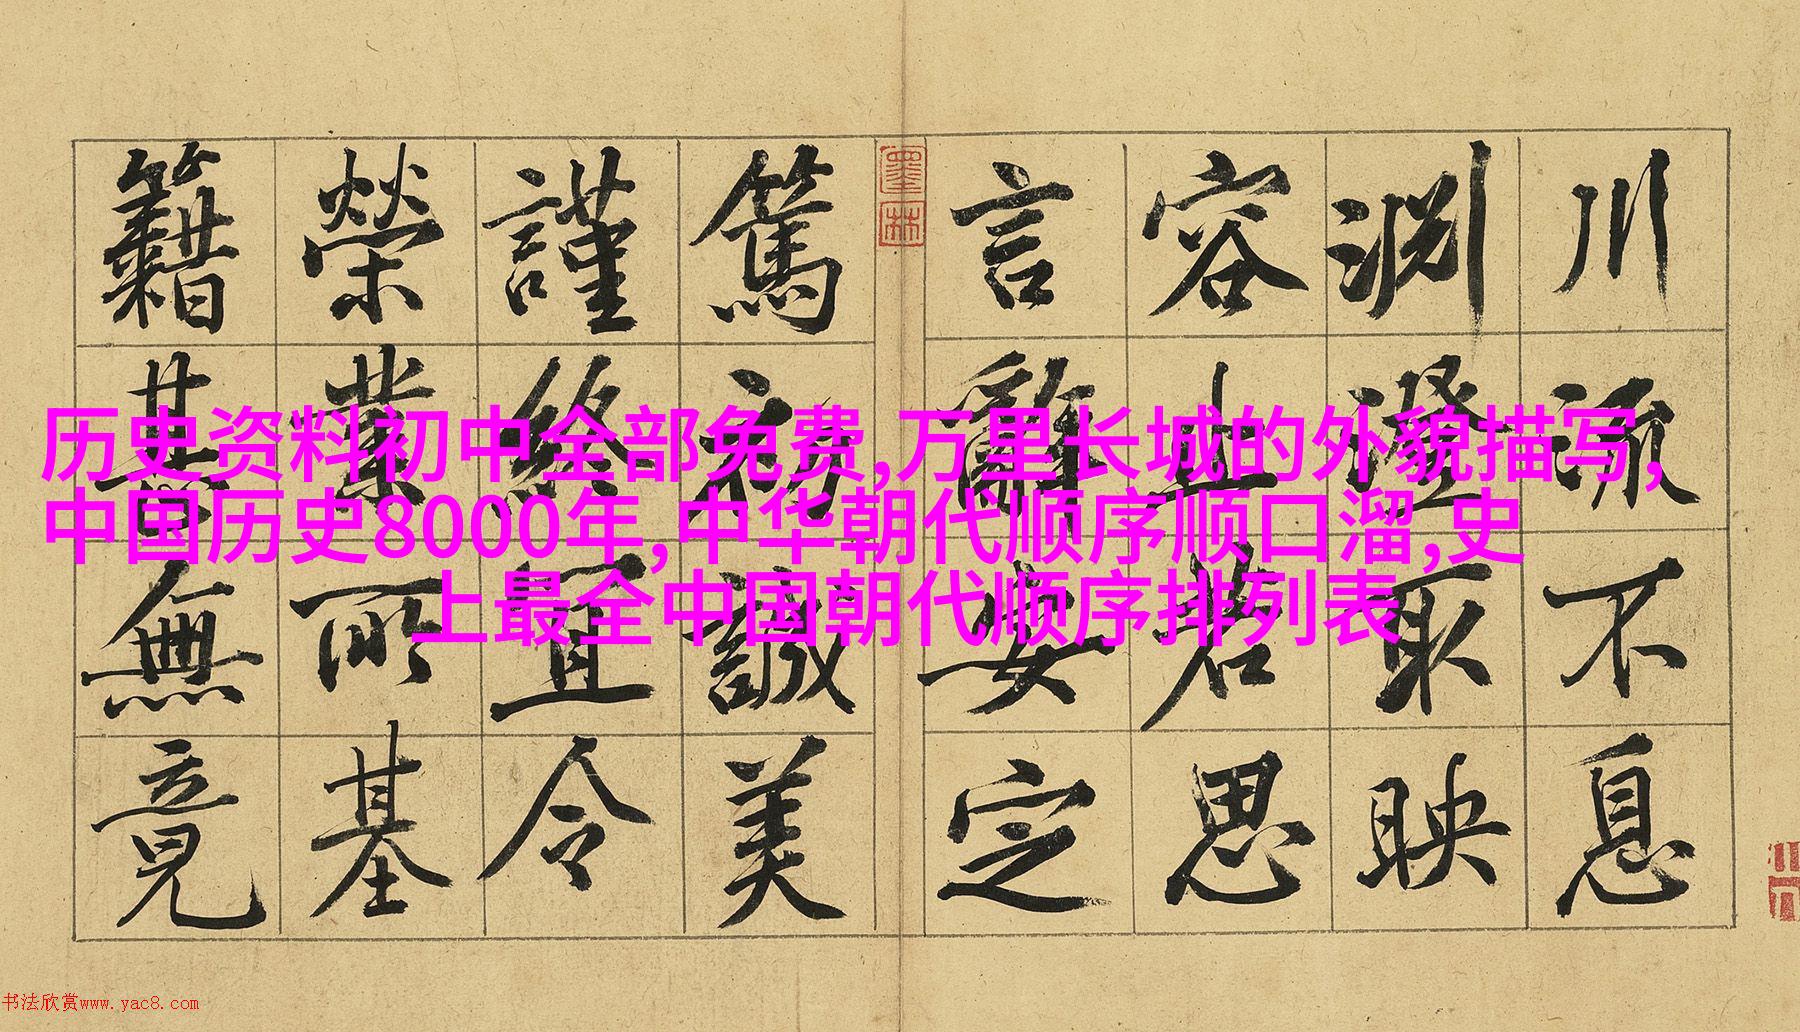 川流不息
淵澄取映
容止若思
言辭安定
墨林
篤初誠美
謹終宜令
榮業所基
籍甚無竟
历史资料初中全部免费,万里长城的外貌描写,
中国历史8000年,中华朝代顺序顺口溜,史
上最全中国朝代顺序排列表
书法欣赏www.yac8.com